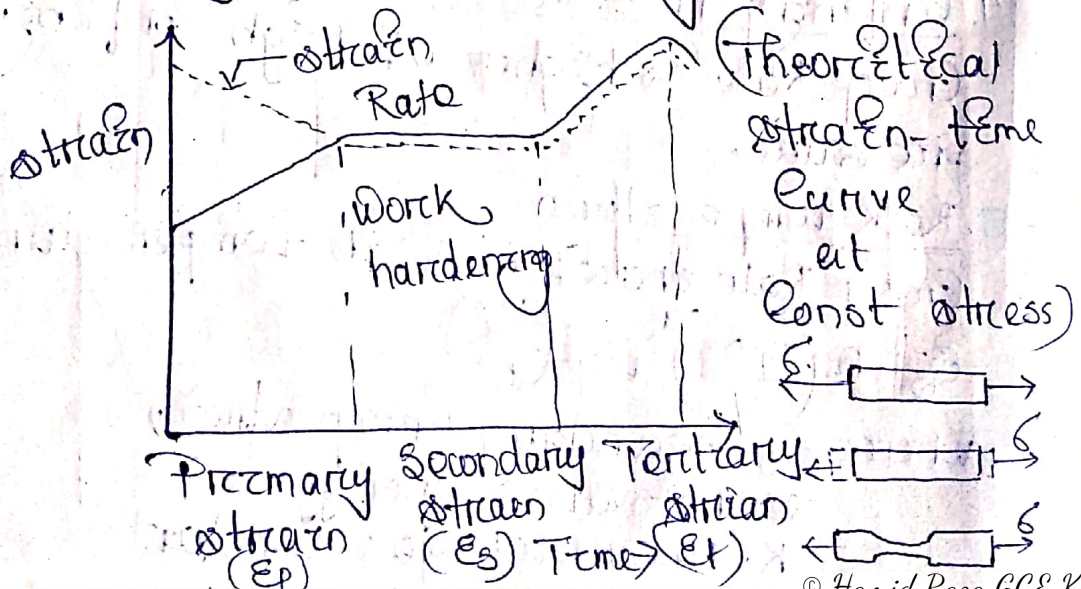 strain
Rate
strain
Work
hardening
(Theoretical
strain-time
Curve
at
Const stress)
σ
Primary
strain
(Ep)
Secondary
strain
(Es)
Tertiary
strian
(Et)
Time→
σ
σ